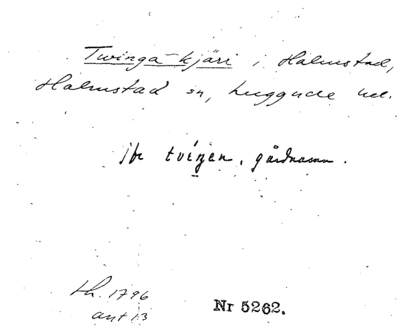 Twinga-kjäri i Halmstad,
Halmstad sn, Luggude hd.
jfr tvéŋen, gårdnamn.
th. 1796
ant 13
Nr 5262.